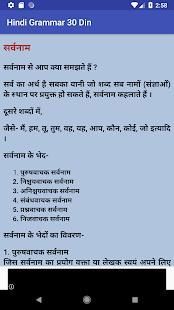 2:58
Hindi Grammar 30 Din
सर्वनाम
सर्वनाम से आप क्या समझते हैं ?
सर्व का अर्थ है सबका यानी जो शब्द सब नामों (संज्ञाओं)
के स्थान पर प्रयुक्त हो सकते हैं, सर्वनाम कहलाते हैं ।
दूसरे शब्दों में,
जैसे- मैं, हम, तू, तुम, वह, यह, आप, कौन, कोई, जो इत्यादि
।
सर्वनाम के भेद-
1. पुरुषवाचक सर्वनाम
2. निश्चयवाचक सर्वनाम
3. अनिश्चयवाचक सर्वनाम
4. संबंधवाचक सर्वनाम
5. प्रश्नवाचक सर्वनाम
6. निजवाचक सर्वनाम
सर्वनाम के भेदों का विवरण-
1. पुरुषवाचक सर्वनाम
जिस सर्वनाम का प्रयोग वक्ता या लेखक स्वयं अपने लिए